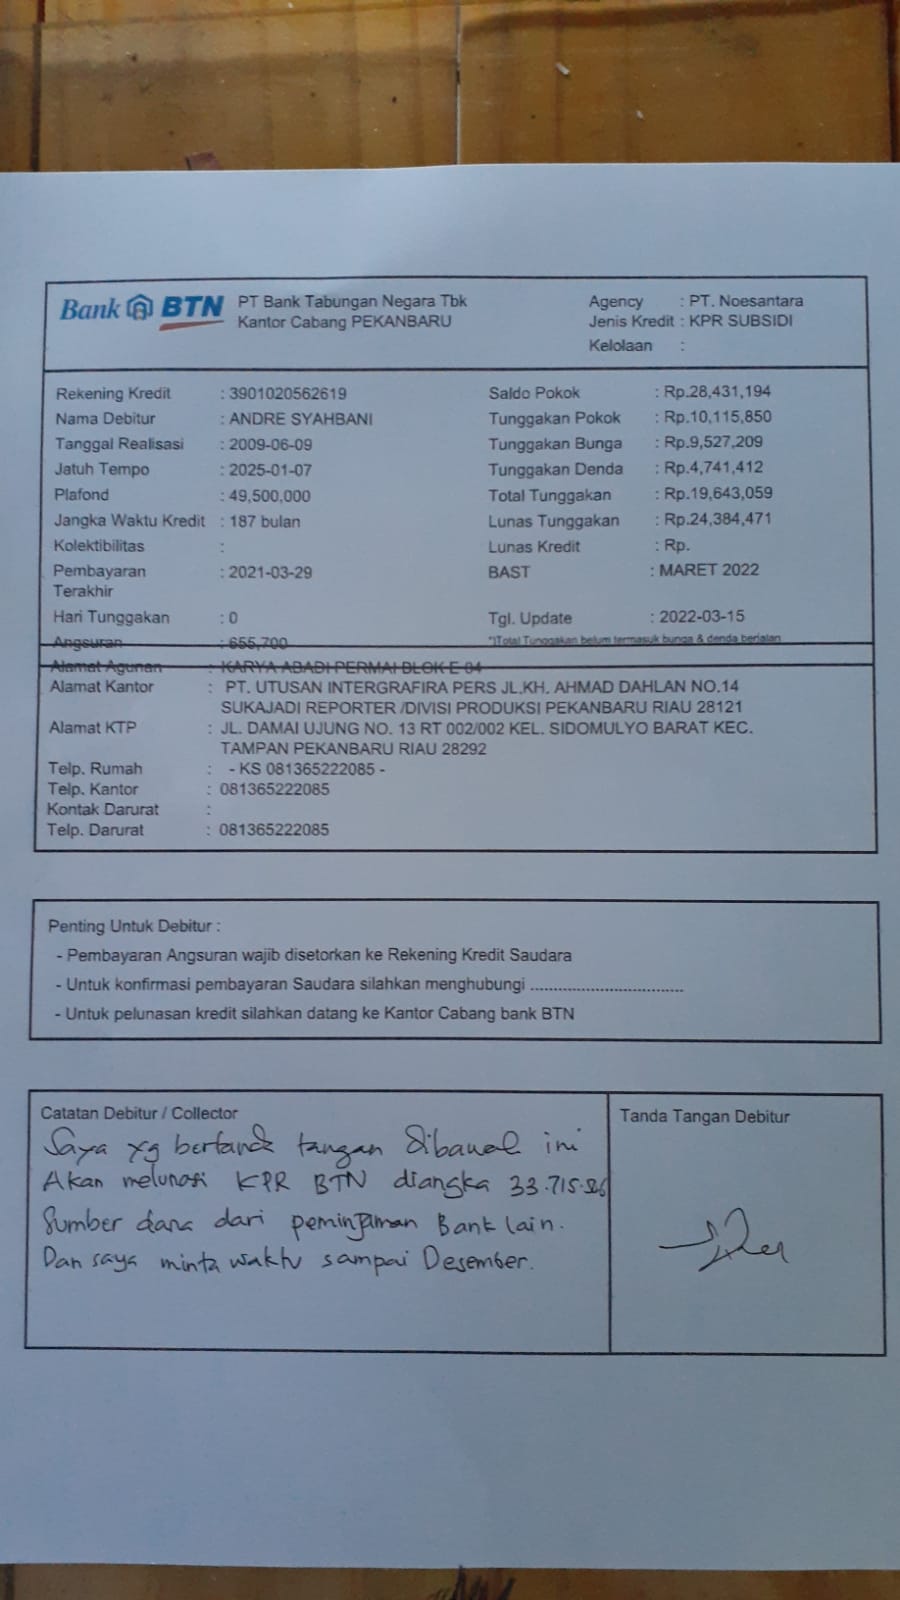 Bank BTN PT Bank Tabungan Negara Tbk
Kantor Cabang PEKANBARU
Agency : PT. Noesantara
Jenis Kredit : KPR SUBSIDI
Kelolaan :
Rekening Kredit : 3901020562619
Nama Debitur : ANDRE SYAHBANI
Tanggal Realisasi : 2009-06-09
Jatuh Tempo : 2025-01-07
Plafond : 49,500,000
Jangka Waktu Kredit : 187 bulan
Kolektibilitas :
Pembayaran : 2021-03-29
Terakhir
Hari Tunggakan : 0
Angsuran : 655,700
Saldo Pokok : Rp.28,431,194
Tunggakan Pokok : Rp.10,115,850
Tunggakan Bunga : Rp.9,527,209
Tunggakan Denda : Rp.4,741,412
Total Tunggakan : Rp.19,643,059
Lunas Tunggakan : Rp.24,384,471
Lunas Kredit : Rp.
BAST : MARET 2022
Tgl. Update : 2022-03-15
*)Total Tunggakan belum termasuk bunga & denda berjalan
Alamat Agunan : KARYA ABADI PERMAI BLOK E 04
Alamat Kantor : PT. UTUSAN INTERGRAFIRA PERS JL.KH. AHMAD DAHLAN NO.14
SUKAJADI REPORTER /DIVISI PRODUKSI PEKANBARU RIAU 28121
Alamat KTP : JL. DAMAI UJUNG NO. 13 RT 002/002 KEL. SIDOMULYO BARAT KEC.
TAMPAN PEKANBARU RIAU 28292
Telp. Rumah : - KS 081365222085 -
Telp. Kantor : 081365222085
Kontak Darurat :
Telp. Darurat : 081365222085
Penting Untuk Debitur :
- Pembayaran Angsuran wajib disetorkan ke Rekening Kredit Saudara
- Untuk konfirmasi pembayaran Saudara silahkan menghubungi ................................
- Untuk pelunasan kredit silahkan datang ke Kantor Cabang bank BTN
Catatan Debitur / Collector
Saya yg bertanda tangan dibawah ini
Akan melunasi KPR BTN diangka
Sumber dana dari peminjaman Bank lain.
Dan saya minta waktu sampai Desember.
Tanda Tangan Debitur